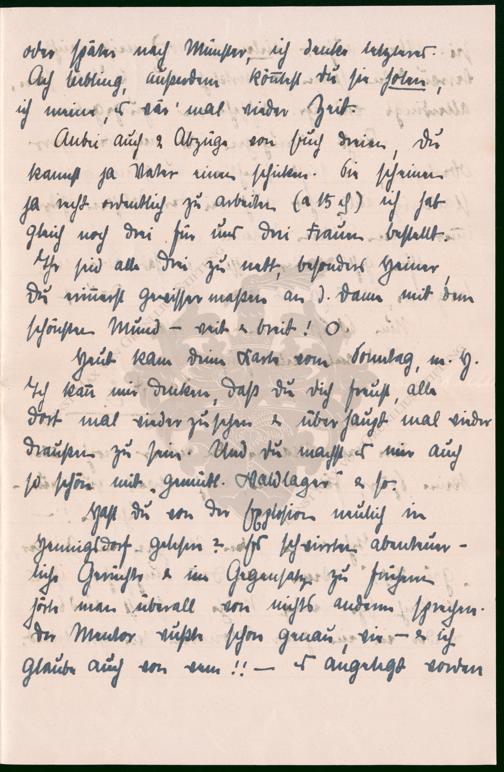 oder später nach Münster, ich denke letzteres.
Ach Liebling, außerdem könntest Du sie holen,
ich meine, es wär' mal wieder Zeit.
Anbei auch 2 Abzüge von Euch dreien, Du
kannst ja Vater einen schicken. Sie scheinen
ja recht ordentlich zu arbeiten (a 15 ₰) ich hab
gleich noch drei für uns drei Frauen bestellt.
Ihr seid alle drei zu nett, besonders Heiner,
Du erinnerst gewissermaßen an d. Dame mit dem
schönsten Mund – weit & breit! O.
Heut kam dein Karte vom Sonntag, m. H.
Ich kann mir denken, daß Du Dich freust alle
dort mal wiederzusehen & überhaupt mal wieder
draußen zu sein. Und Du machst es mir auch
so schön mit "gemütl. Waldlager" & so.
Hast Du von der Explosion neulich in
Hennigsdorf gelesen? Es schwirren abenteuer-
liche Gerüchte & im Gegensatz zu früher
hört man überall von nichts anderm sprechen.
Der Mentor wußte schon genau, wie – & ich
glaube auch von wem!! – es angelegt worden